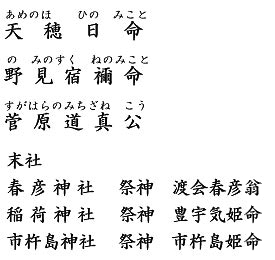 あめのほ ひの みこと
天穂日命
の みのすく ねのみこと
野見宿禰命
すがはらのみちざね こう
菅原道真公
末社
春彦神社 祭神 渡会春彦翁
稲荷神社 祭神 豊宇気姫命
市杵島神社 祭神 市杵島姫命